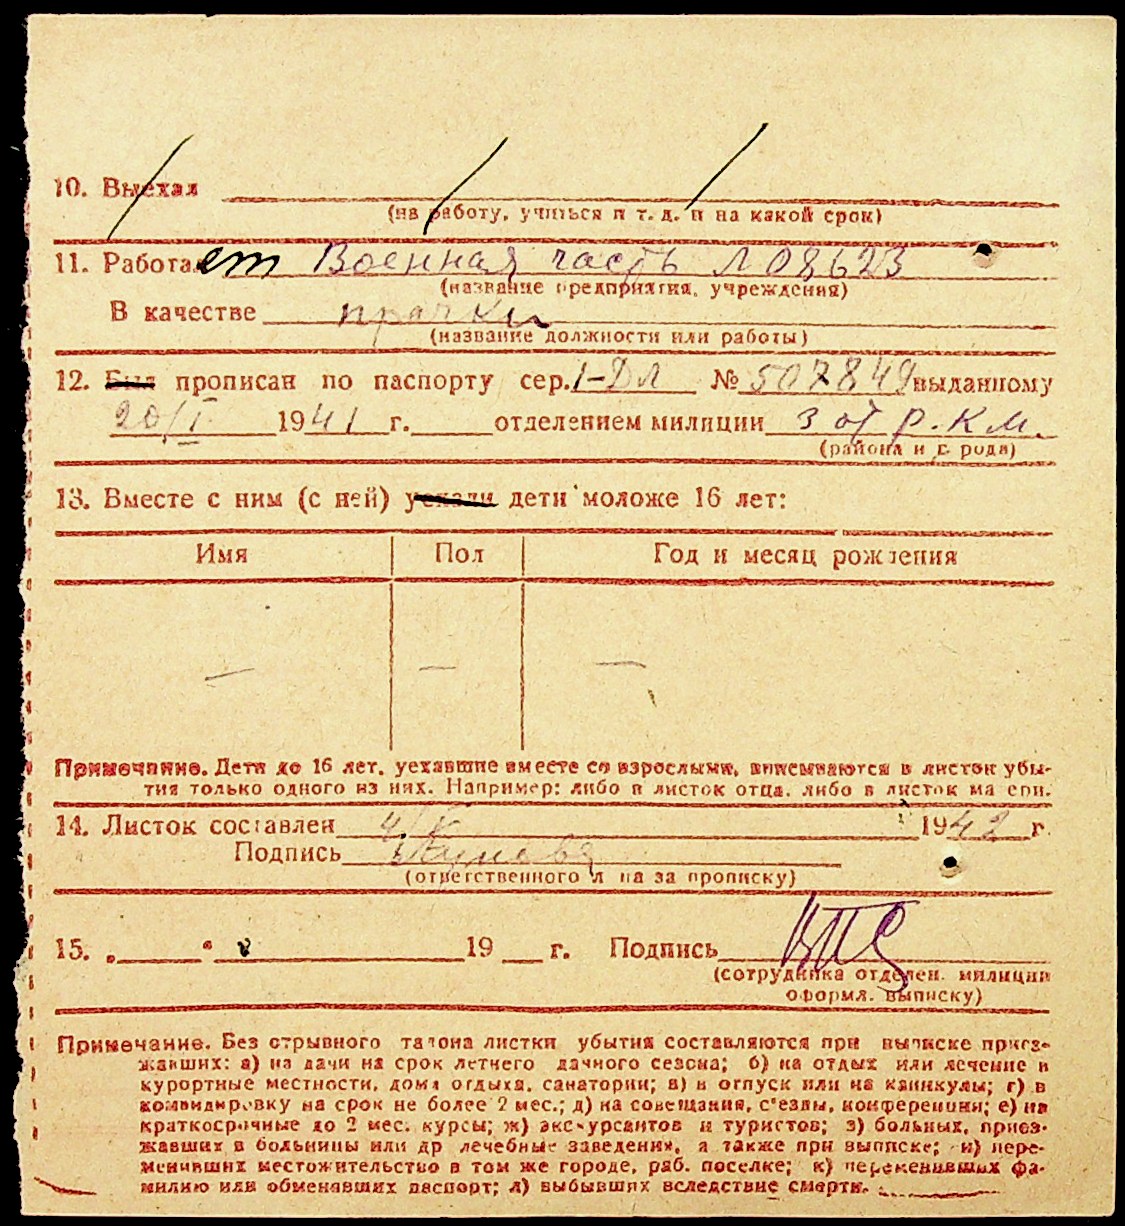 10. Выехал
(на работу, учиться и т. д. и на какой срок)
11. Работает Военная часть Л 08623
(название предприятия, учреждения)
В качестве прачки
(название должности или работы)
12. Был прописан по паспорту сер. I-ДЛ № 507849 выданному
20/I 1941 г. отделением милиции 3 от Р.К.М.
(района и города)
13. Вместе с ним (с ней) уехали дети моложе 16 лет:
Имя Пол Год и месяц рождения
— — —
Примечание. Дети до 16 лет, уехавшие вместе со взрослыми, вписываются в листок убы-
тия только одного из них. Например: либо в листок отца, либо в листок матери.
14. Листок составлен 4/X 1942 г.
Подпись
(ответственного лица за прописку)
15. „ “ 19 г. Подпись
(сотрудника отделен. милиции
оформл. выписку)
Примечание. Без отрывного талона листки убытия составляются при выписке приез-
жавших: а) на дачи на срок летнего дачного сезона; б) на отдых или лечение в
курортные местности, дома отдыха, санатории; в) в отпуск или на каникулы; г) в
командировку на срок не более 2 мес.; д) на совещания, съезды, конференции; е) на
краткосрочные до 2 мес. курсы; ж) экскурсантов и туристов; з) больных, приез-
жавших в больницы или др лечебные заведения, а также при выписке; и) пере-
менивших местожительство в том же городе, раб. поселке; к) переменивших фа-
милию или обменявших паспорт; л) выбывших вследствие смерти.